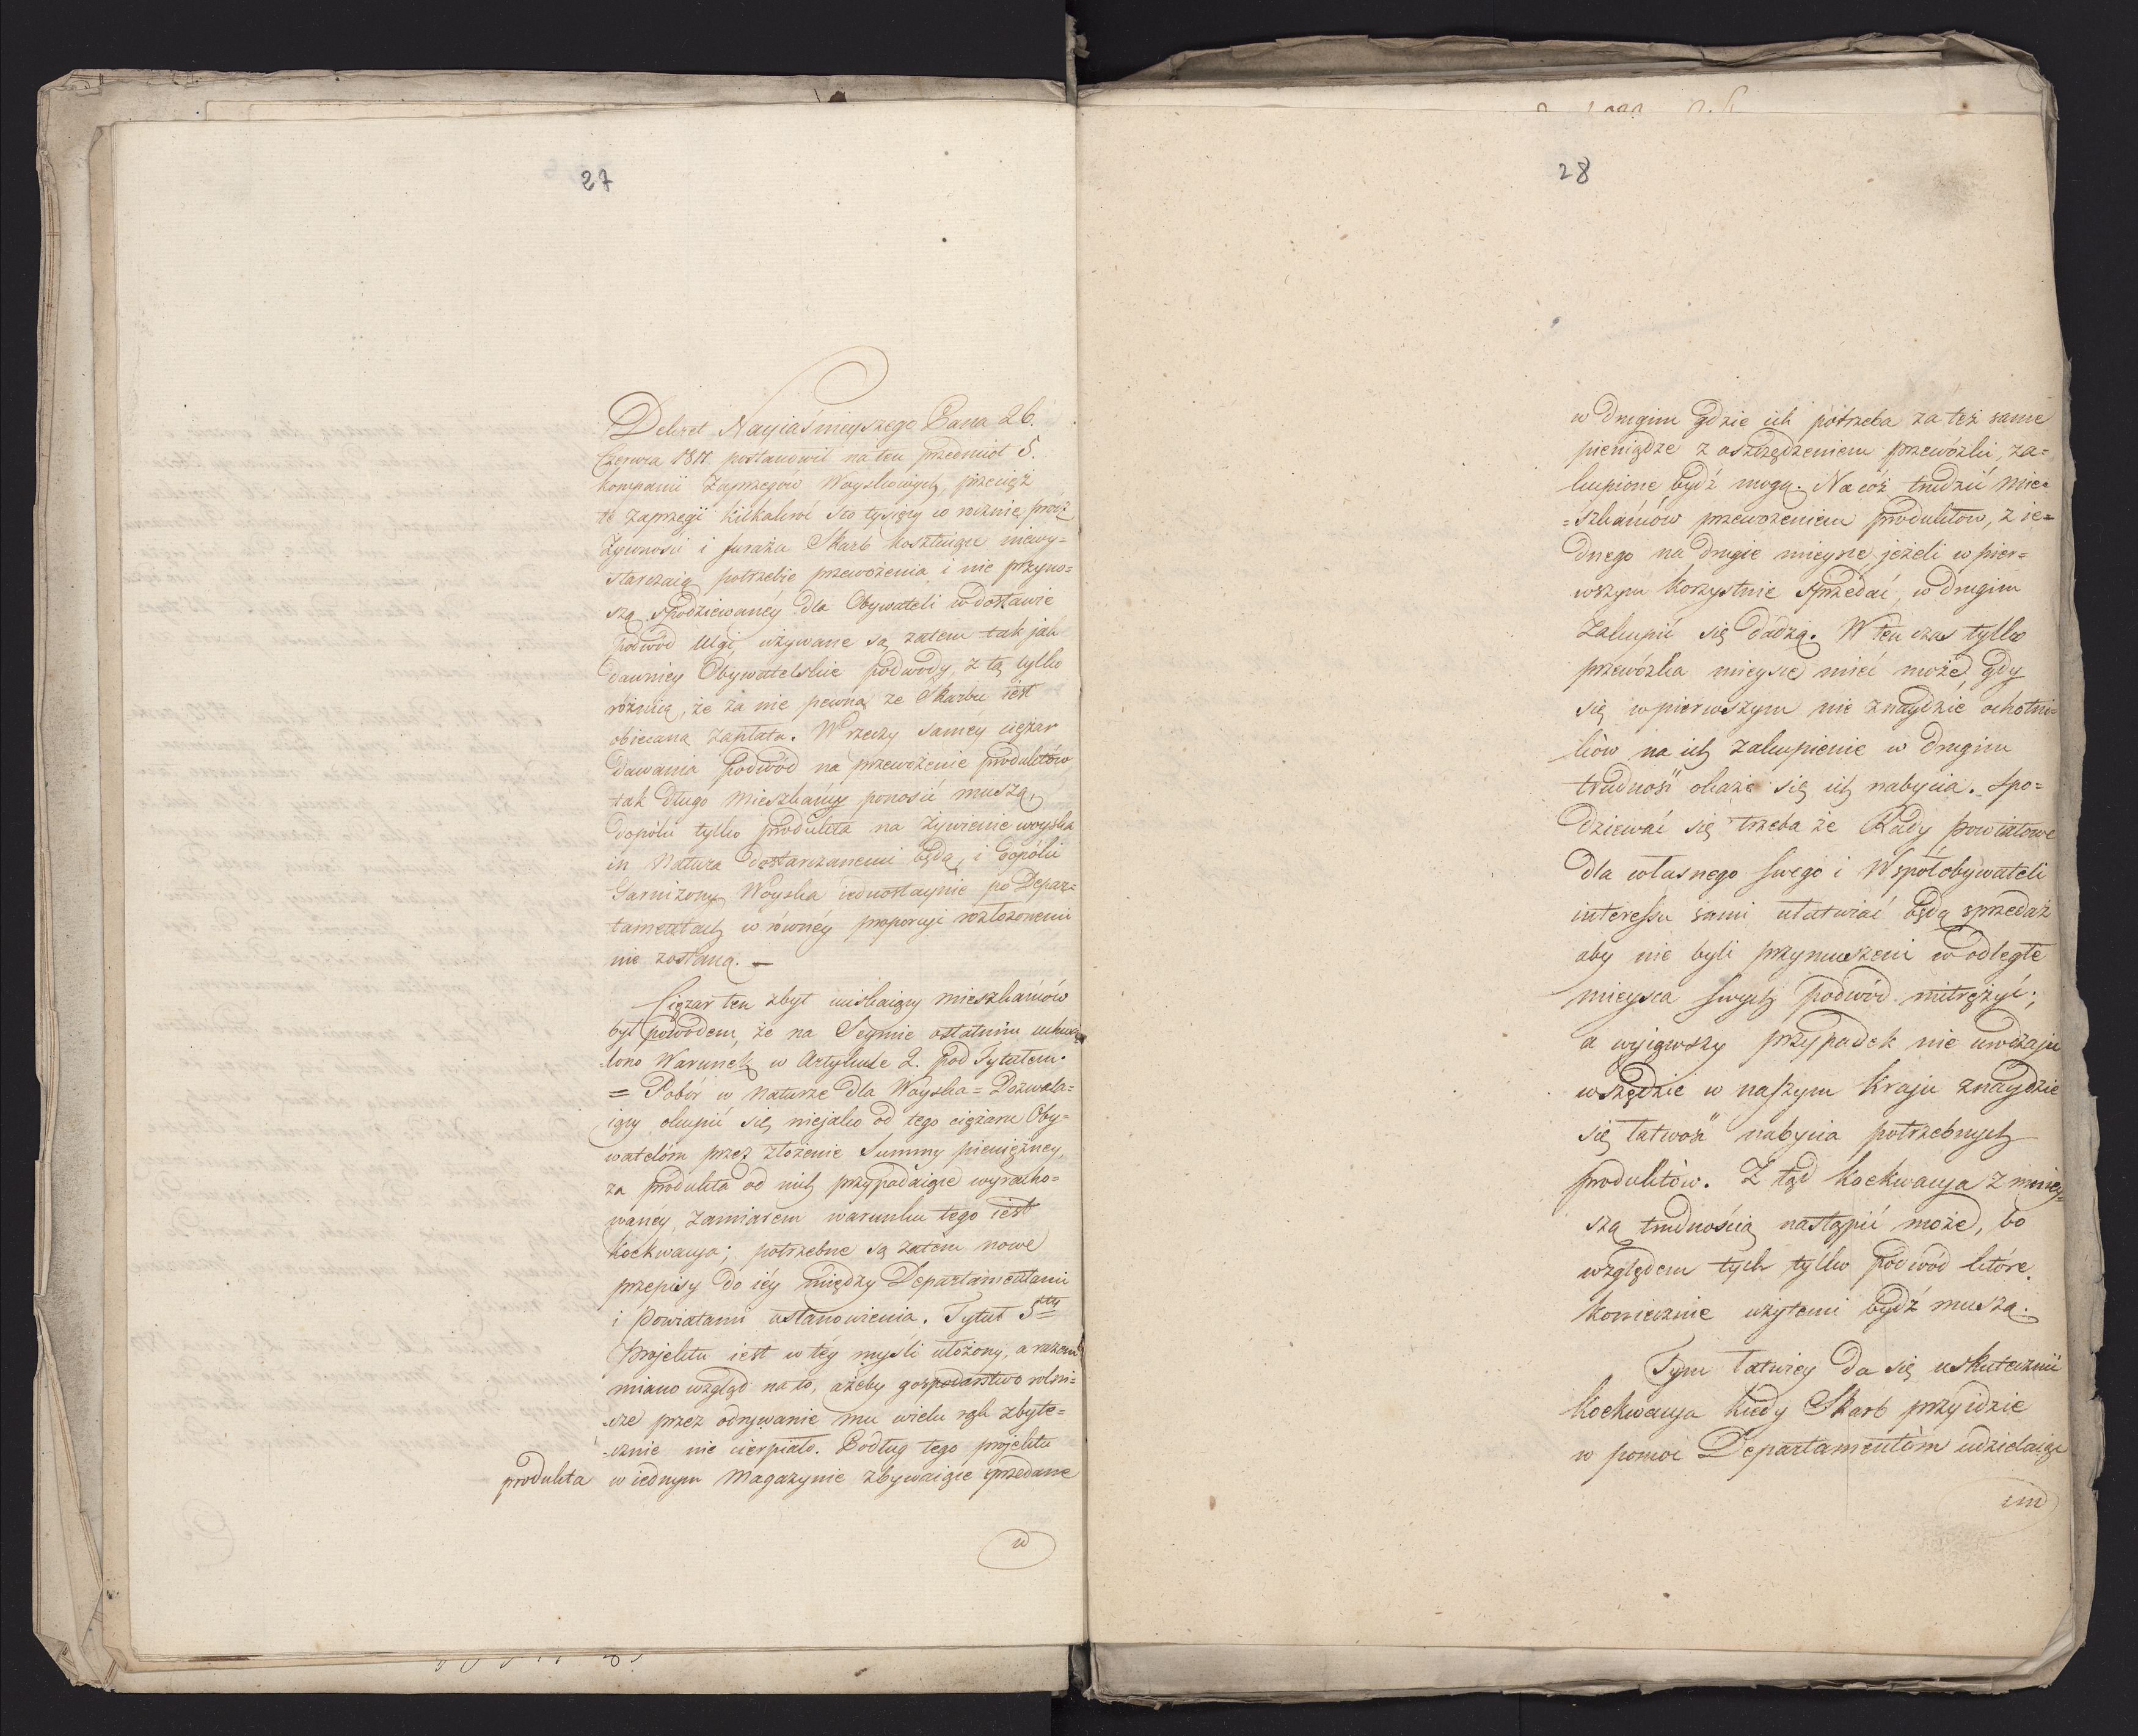 27
Dekret Nayiaśnieyszego Pana 26.
Czerwca 1811. postanowił na ten przedmiot 5.
kompanii Zaprzęgow Woyskowych, przecięż
te zaprzęgi kilkakroć sto tysięcy co rocznie prócz
Żywności i furażu Skarb kosztuiące niewy=
starczaią potrzebie przewożenia i nie przyno=
szą spodziewanéy dla Obywateli w dostawie
podwód ulgi, używane są zatem tak jak
dawniey Obywatelskie podwody, z tą tylko
różnicą, że za nie pewna ze Skarbu iest
obiecana zapłata. W rzeczy samey ciężar
dawania podwód na przewożenie produktów
tak długo Mieszkańcy ponosić muszą,
dopóki tylko produkta na żywienie woyska
in Natura dostarczanemi będą, i dopóki
Garnizony Woyska iednostaynie po Depar=
tamentach w równéy proporcyi rozłożonemi
nie zostaną. —
Ciężar ten zbyt uciskaiący mieszkańców
był powodem, że na Seymie ostatnim uchwa
lono Warunek w Artykule 2. pod Tytułem.
= Pobór w Naturze dla Woyska = Dozwala=
iący okupić się niejako od tego ciężaru Oby=
watelóm przez złożenie Summy pieniężney,
za produkta od nich przypadaiące wyracho=
wanéy, Zamiarem warunku tego iest
Koekwacya; potrzebne są zatem nowe
przepisy do iéy między Departamentami
i Powiatami ustanowienia. Tytuł 5ty
Projektu iest w téy myśli ułożony, a razem
miano wzgląd na to, ażeby gospodarstwo rolni=
cze przez odrywanie mu wielu rąk zbyte=
=cznie nie cierpiało. Podług tego projektu
produkta w iednym Magazynie zbywaiące sprzedane
w
28
w drugim gdzie ich potrzeba za też same
pieniądze z oszczędzeniem przewózki, za=
kupione bydź mogą. Na cóż trudzić Mie=
=szkańców przewożeniem produktow, z ie=
dnego na drugie mieysce jeżeli w pier=
wszym korzystnie sprzedać, w drugim
Zakupić się dadzą. W ten czas tylko
przewózka mieysce mieć może, gdy
się w pierwszym nie znaydzie ochotni=
ków na ich zakupienie w drugim
trudność okaże się ich nabycia. Spo=
dziewać się trzeba że Rady powiatowe
dla własnego swego i Współobywateli
interessu sami ułatwiać będą sprzedaż
aby nie byli przymuszeni w odległe
mieysca swych podwód mitrężyć;
a wyiąwszy przypadek nie urodzaju
wszędzie w naszym Kraju znaydzie
się łatwość nabycia potrzebnych
produktów. Z tąd koekwacya z mniey=
szą trudnością nastąpić może, bo
względem tych tylko podwód które
koniecznie użytemi bydź muszą.
Tym łatwiey da się uskutecznić
koekwacya kiedy Skarb przyidzie
w pomoc Departamentóm udzielaiąc
im